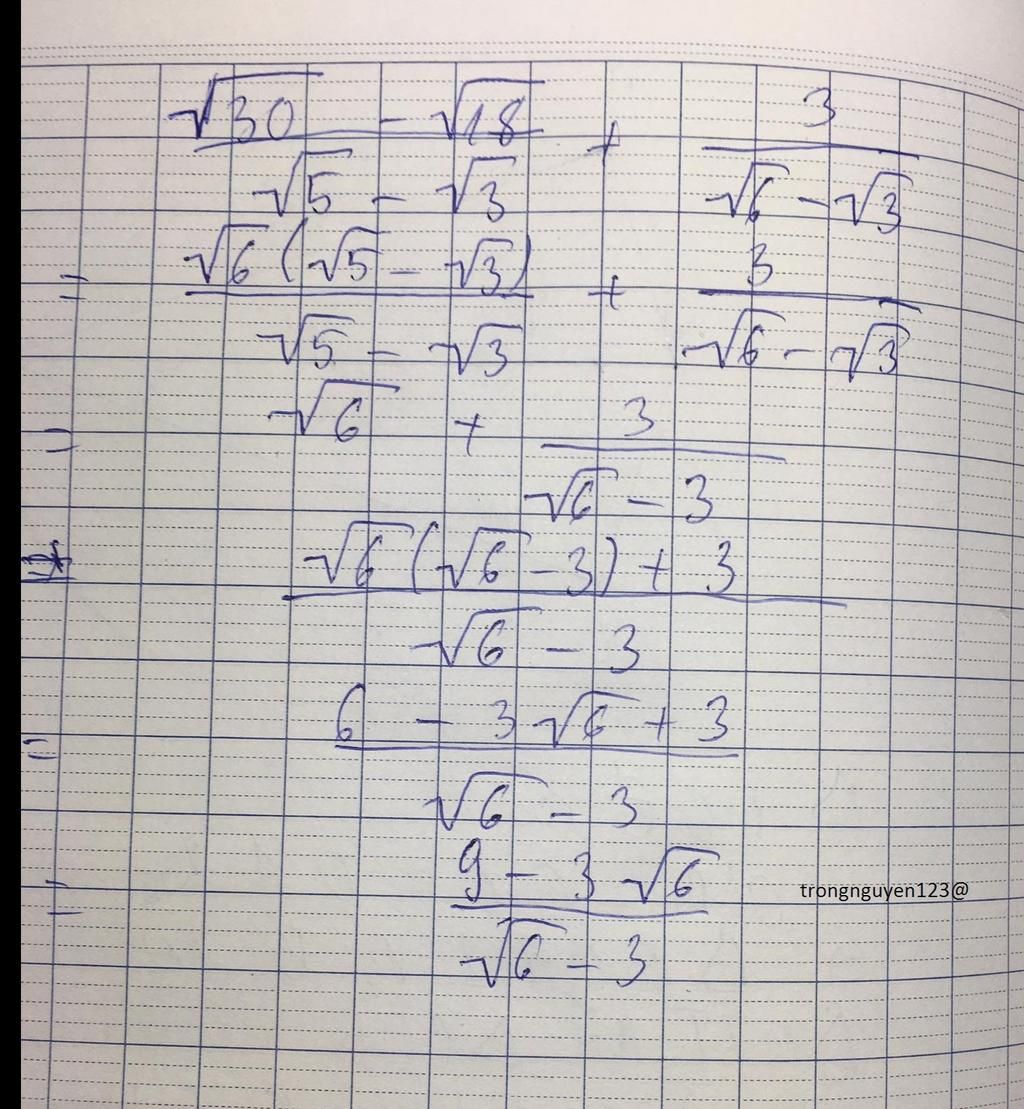 (√30 - √18)/(√5 - √3) + 3/(√6 - √3)
= √6(√5 - √3)/(√5 - √3) + 3/(√6 - √3)
= √6 + 3/(√6 - 3)
= (√6(√6 - 3) + 3)/(√6 - 3)
= (6 - 3√6 + 3)/(√6 - 3)
= (9 - 3√6)/(√6 - 3)
trongnguyen123@